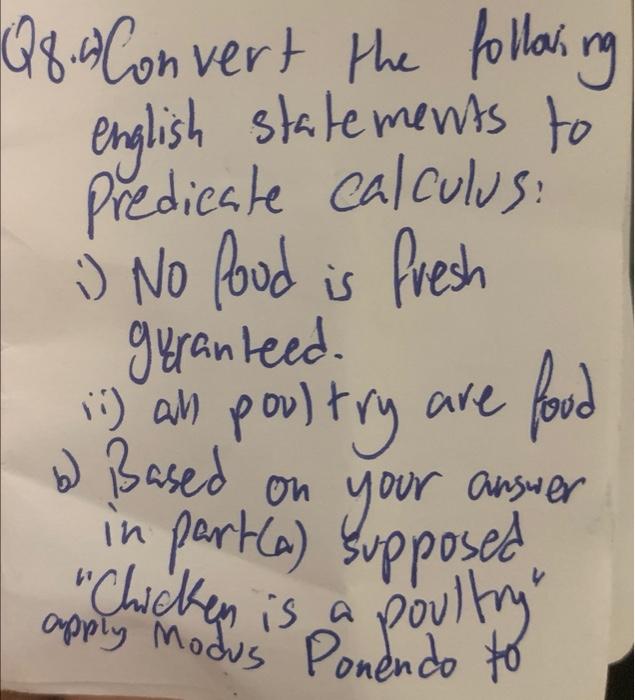 Q8.a) Convert the following
english statements to
predicate calculus:
i) No food is fresh
guranteed.
ii) all poultry are food
b) Based on your answer
in part(a) supposed
"Chicken is a poultry"
apply Modus Ponendo to